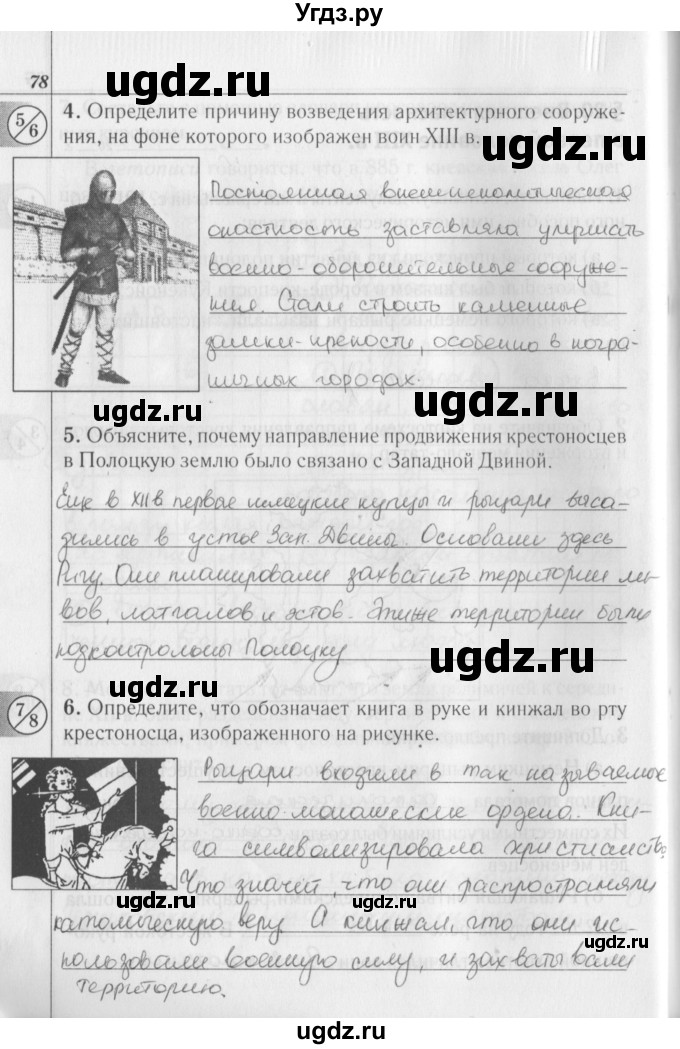 Угдз.ру
ugdz.ru
78
ugdz.ru
5/6
4. Определите причину возведения архитектурного сооруже-
ния, на фоне которого изображен воин XIII в.
ugdz.ru
Постоянная внешнеполитическая
опастность заставляла улучшать
военно-оборонительные сооруже-
ния. Стали строить каменные
замки-крепости, особенно в погра-
ничных городах.
ugdz.ru
ugdz.ru
5. Объясните, почему направление продвижения крестоносцев
в Полоцкую землю было связано с Западной Двиной.
Еще в XII в первые немецкие купцы и рыцари выса-
дились в устье Зап. Двины. Основали здесь
Ригу. Они планировали захватить территории ли-
вов, латгалов и эстов. Эти же территории были
подконтрольны Полоцку
ugdz.ru
ugdz.ru
7/8
6. Определите, что обозначает книга в руке и кинжал во рту
крестоносца, изображенного на рисунке.
Рыцари входили в так называемые
военно-монашеские ордена. Кни-
га символизировала христианство,
Что значит что они распространяли
католическую веру А кинжал, что они ис-
пользовали военную силу, и захватывали
территорию.
ugdz.ru
ugdz.ru
ugdz.ru
ugdz.ru